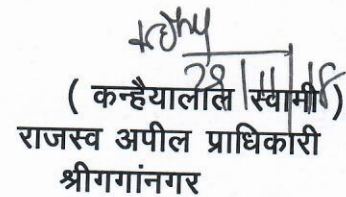 28/11/18
( कन्हैयालाल स्वामी )
राजस्व अपील प्राधिकारी
श्रीगगांनगर